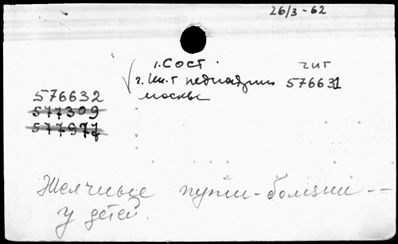 26/3-62
1. СОСТ. ЧИТ
2. Ин-т педиатрии 576631
576632 москвы
577309
577977
Желчные пути - болезни --
у детей.